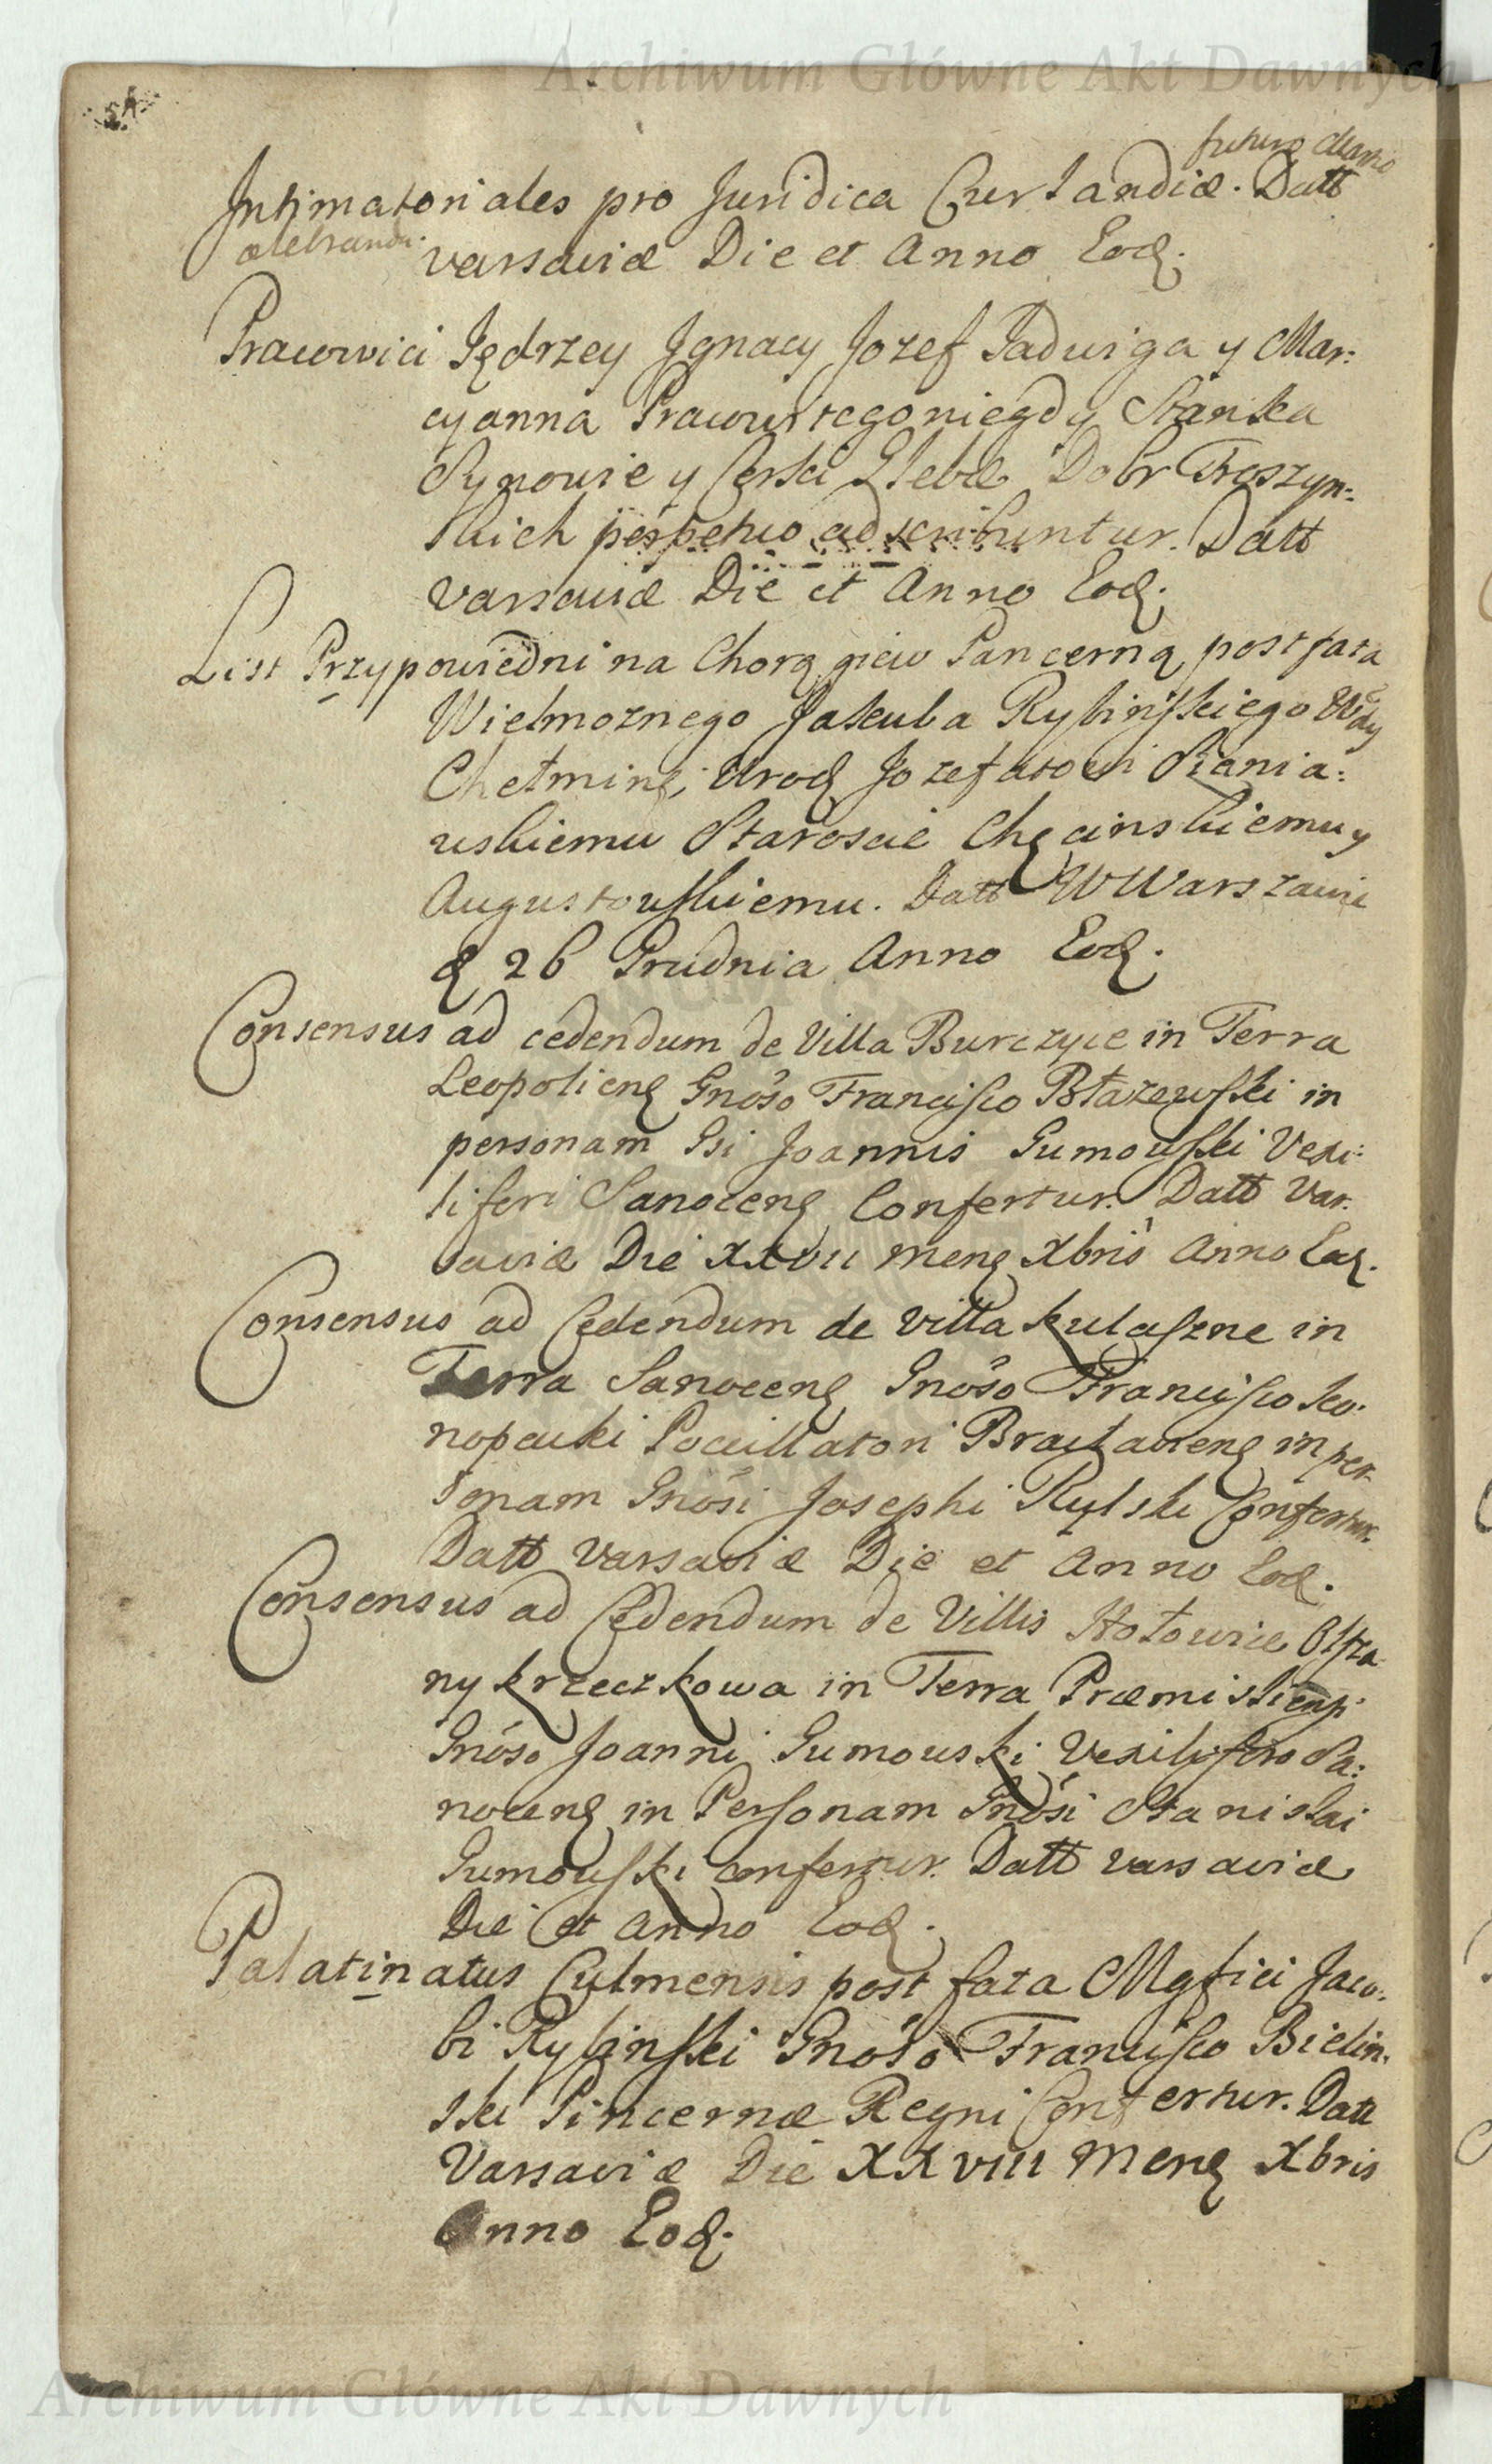 Archiwum Główne Akt Dawnych
futuro
Intimatoriales pro Juridica Curlandiæ. Datt
celebranda.
Varsaviæ Die et Anno Eod.
Pracowici Jędrzey Jgnacy Jozef Jadwiga y Mar:
cyanna Pracowitego niegdy Stanka
Synowie y Corki Glebæ Dobr Troszyn:
skich perpetuo adscribuntur. Datt
Varsaviæ Die et Anno Eod.
List Przypowiedni na Chorągiew Pancerną post fata
Wielmoznego Jakuba Rybinskiego Wdy
Chełminſ; Urod Jozefatowi Piania:
uskiemu Staroscie Chęcinskiemu y
Augustowskiemu. Datt W Warszawie
d 26 Grudnia Anno Eod.
Consensus ad cedendum de Villa Burczyce in Terra
Leopolienſ Gnoso Francisco Błazewski in
personam Gsi Joannis Gumowski Vexi:
liferi Sanocenſ Confertur. Datt Var.
saviæ Die XXVII Menſ Xbris Anno Eod.
Consensus ad Cedendum de Villa Kulaszne in
Terra Sanocenſ Gnoso Francisco Ko:
nopacki Pocillatori Bracłavienſ in per
sonam Gnosi Josephi Rylski Confertur.
Datt Varsaviæ Die et Anno Eod.
Consensus ad Cedendum de Villis Hołowice Olsza
ny Krzeczkowa in Terra Præmislienſ
Gnoso Joanni Gumowski Vexilifero Sa:
nocenſ in Personam Gnosi Stanislai
Gumowski confertur. Datt Varsaviæ
Die et Anno Eod.
Palatinatus Culmensis post fata Mgfici Jaco:
bi Rybinski Gnoso Francisco Bielin:
ski Pincernæ Regni Confertur. Datt
Varsaviæ Die XXVIII Menſ Xbris
Anno Eod.
Archiwum Główne Akt Dawnych